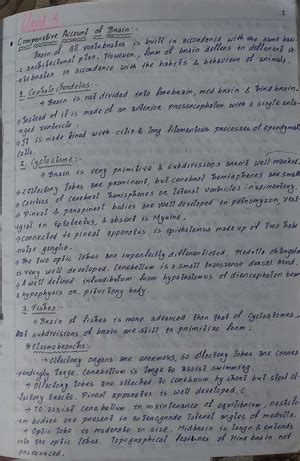 Unit-3
1
Comperative Account of Brain:-
Brain of All vertebrates is built in accordance with the same basi-
c architectural plan. However, form of brain differs in different v-
ertebrates in accordance with the habits & behaviour of animals.
1. Cephalochordates:-
Brain is not divided into forebrain, mid brain & hind brain.
Instead of it is made of an anterior prosencephalon with a single enla-
rged ventricle.
It is made lined with cilia & long filamentous processes of ependyma
cells.
2. Cyclostome:-
Brain is very primitive & subdivisions aren't well marked.
Olfactory lobes are prominent, but cerebral hemispheres are small
Cavities of cerebral hemispheres or lateral ventricles - rudimentary.
Pineal & parapineal bodies are well developed in petromyzon, vest-
igial in & absent in Myxine.
Connected to pineal apparatus is epithalamus made up of two habe-
nulae ganglia.
The two optic lobes are imperfectly differentiated. Medulla oblongata
is very well developed. Cerebellum is a small transverse dorsal band.
A well defined infundibulum from hypothalamus of diencephalon bear
hypophysis or pituitary body.
3. Fishes:-
Brain of fishes is more advanced than that of cyclostomes,
but subdivisions of brain are still in primitive form.
Elasmobranchs:-
Olfactory organs are enormous, so olfactory lobes are corres-
pondingly large. Cerebellum is large to assist swimming.
Olfactory lobes are attached to cerebrum by short but stout ol-
factory tracts. Pineal apparatus is well developed.
To assist cerebellum in maintenance of equilibrium, restifo-
rm bodies are present in lateral angles of medulla.
Optic lobe is moderate in size. Midbrain is large & extends
into the optic lobes. Topographical features of Hind brain not
pronounced.